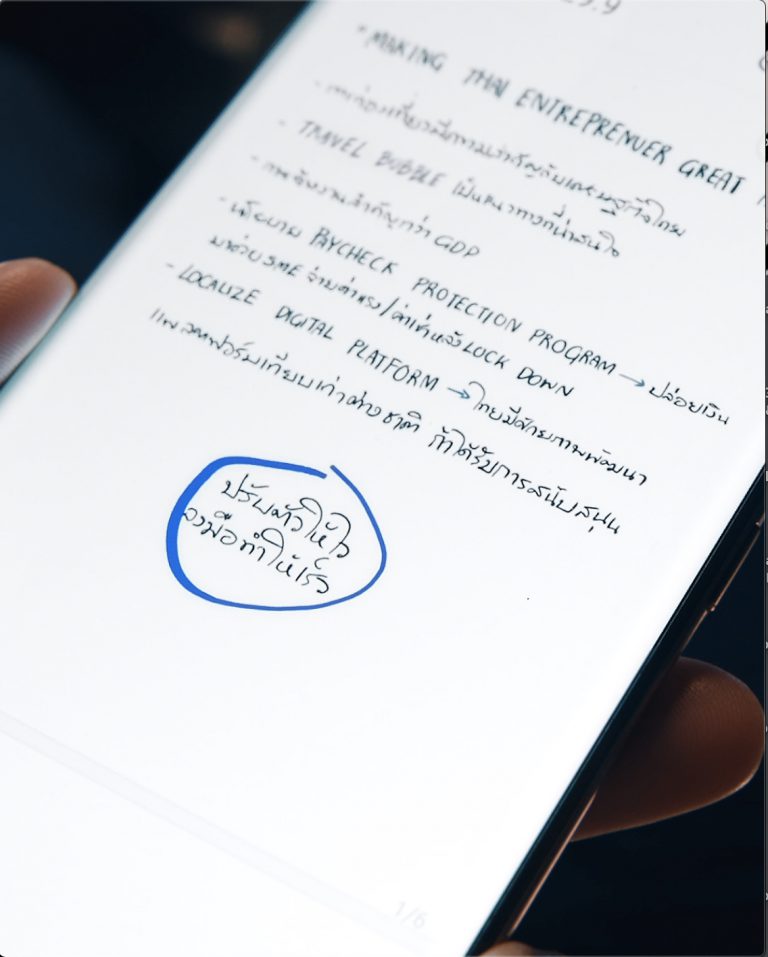 29.9
* MAKING THAI ENTREPRENUER GREAT
- การท่องเที่ยวมีความสำคัญกับเศรษฐกิจไทย
- TRAVEL BUBBLE เป็นแนวทางที่น่าสนใจ
- การจ้างงานสำคัญกว่า GDP
- นโยบาย PAYCHECK PROTECTION PROGRAM → ปล่อยเงิน
มาช่วย SME จ่ายค่าแรง/ค่าเช่าหลัง LOCK DOWN
- LOCALIZE DIGITAL PLATFORM → ไทยมีศักยภาพพัฒนา
แพลตฟอร์มเทียบเท่าต่างชาติ ถ้าได้รับการสนับสนุน
ปรับตัวให้ไว
ลงมือทำให้เร็ว
1/6